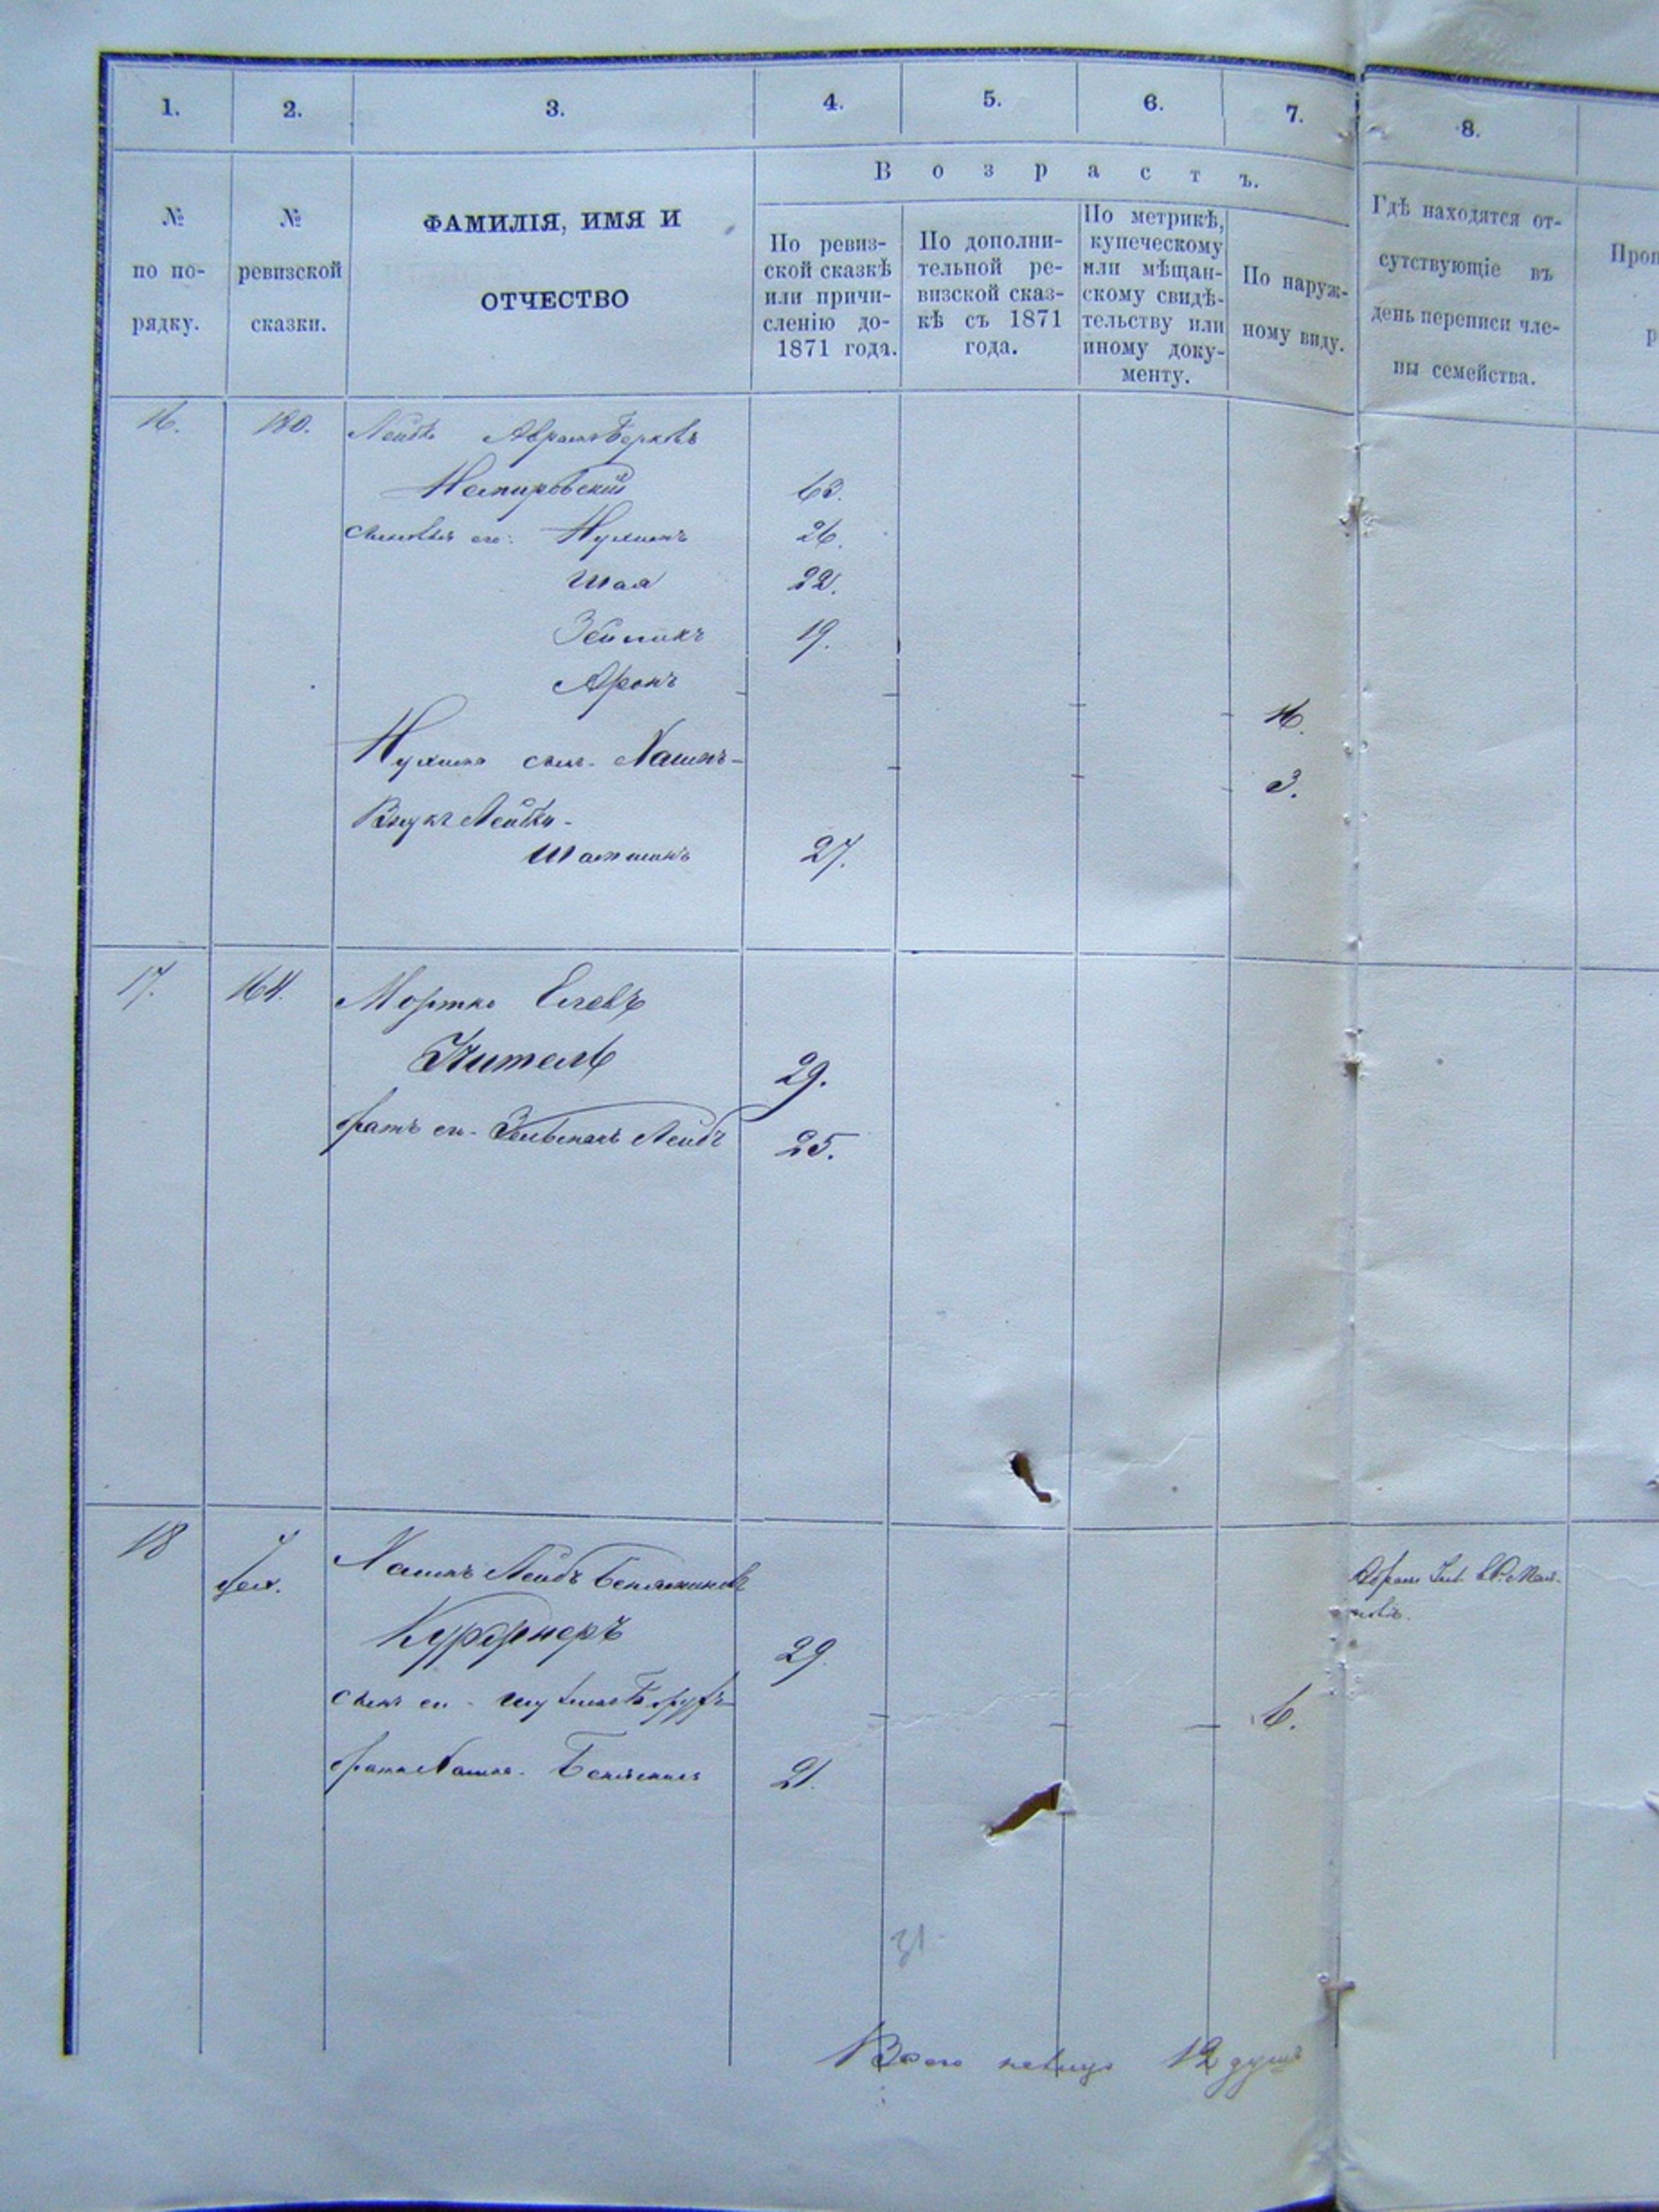 1. 2. 3. 4. 5. 6. 7. 8.
Возрастъ.
№
по по-
рядку.
№
ревизской
сказки.
ФАМИЛІЯ, ИМЯ И
ОТЧЕСТВО
По ревиз-
ской сказкѣ
или причи-
сленію до-
1871 года.
По дополни-
тельной ре-
визской сказ-
кѣ съ 1871
года.
По метрикѣ,
купеческому
или мѣщан-
скому свидѣ-
тельству или
иному доку-
менту.
По наруж-
ному виду.
Гдѣ находятся от-
сутствующіе въ
день переписи чле-
ны семейства.
16. 180. Лейба АврамъБерковъ
Немировскій 63.
сыновья его: Нухимъ 26.
Шая 22.
Зейликъ 19.
Аронъ 16.
Нухима сынъ - Хаимъ - 3.
Внукъ Лейбы -
27.
17. 164. Мортко
Кительъ 29.
братъ его - Лейбъ 25.
18 Хаимъ Лейбъ Беньяминовъ
29.
сынъ его - 6.
братъ Хаима - Беньяминъ 21.
31
Всего 12 душъ